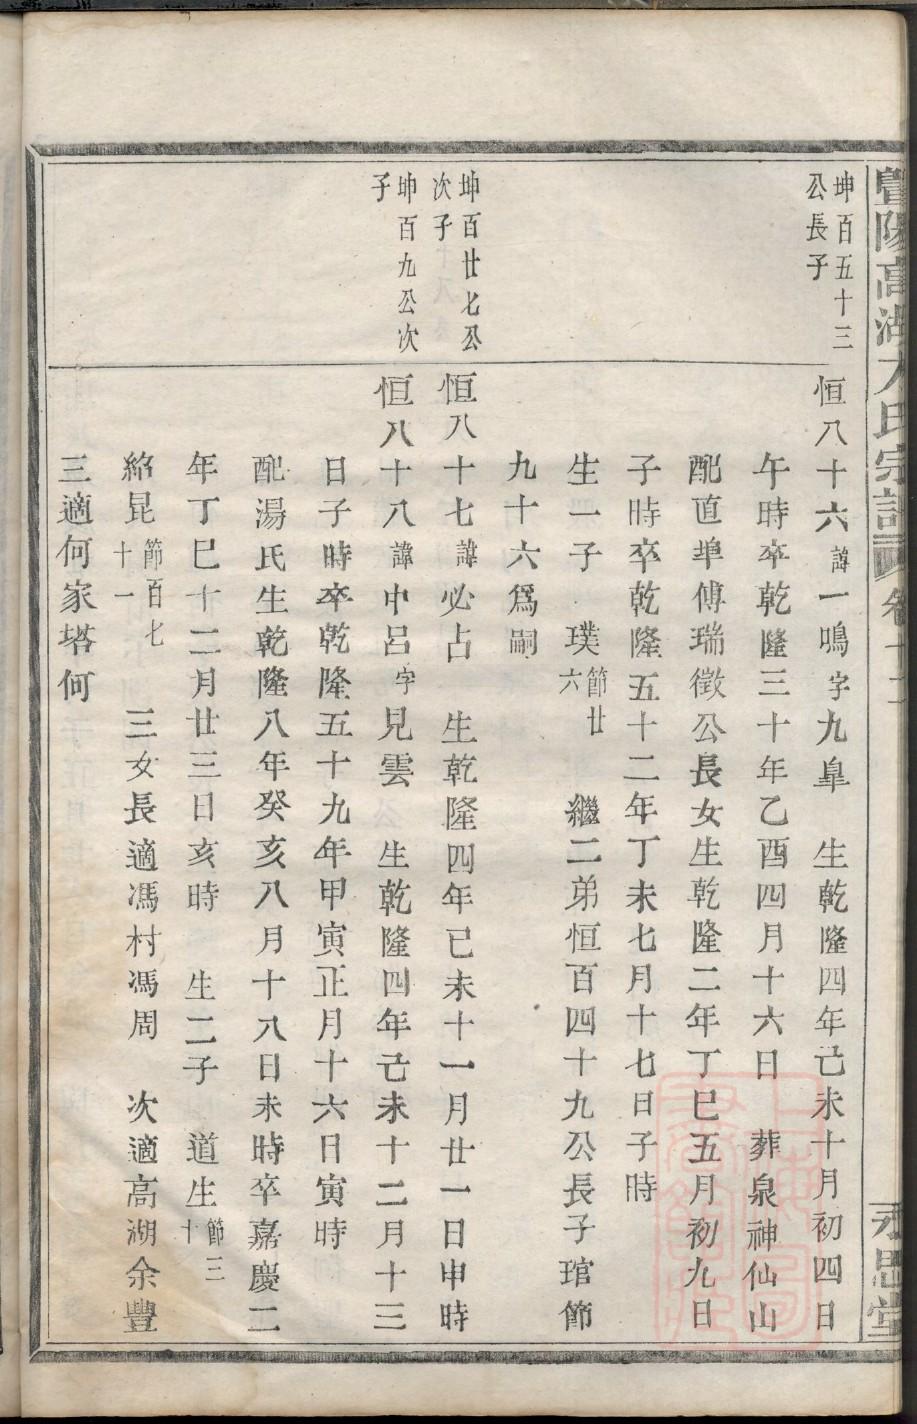 暨陽高湖 氏宗譜 卷十二 永思堂
坤百五十三
公長子
恒八十六諱一鳴字九臯 生乾隆四年己未十月初四日
午時卒乾隆三十年乙酉四月十六日 葬泉神仙山
配直埠傅瑞徵公長女生乾隆二年丁巳五月初九日
子時卒乾隆五十二年丁未七月十七日子時
生一子 璞節廿六 繼二弟恒百四十九公長子琯節
九十六爲嗣
坤百廿七公
次子
恒八十七諱必占 生乾隆四年己未十一月廿一日申時
坤百九公次
子
恒八十八諱中呂字見雲 生乾隆四年己未十二月十三
日子時卒乾隆五十九年甲寅正月十六日寅時
配湯氏生乾隆八年癸亥八月十八日未時卒嘉慶二
年丁巳十二月廿三日亥時 生二子 道生節三十
綌昆節百七十一 三女長適馮村馮周 次適高湖余豐
三適何家塔何